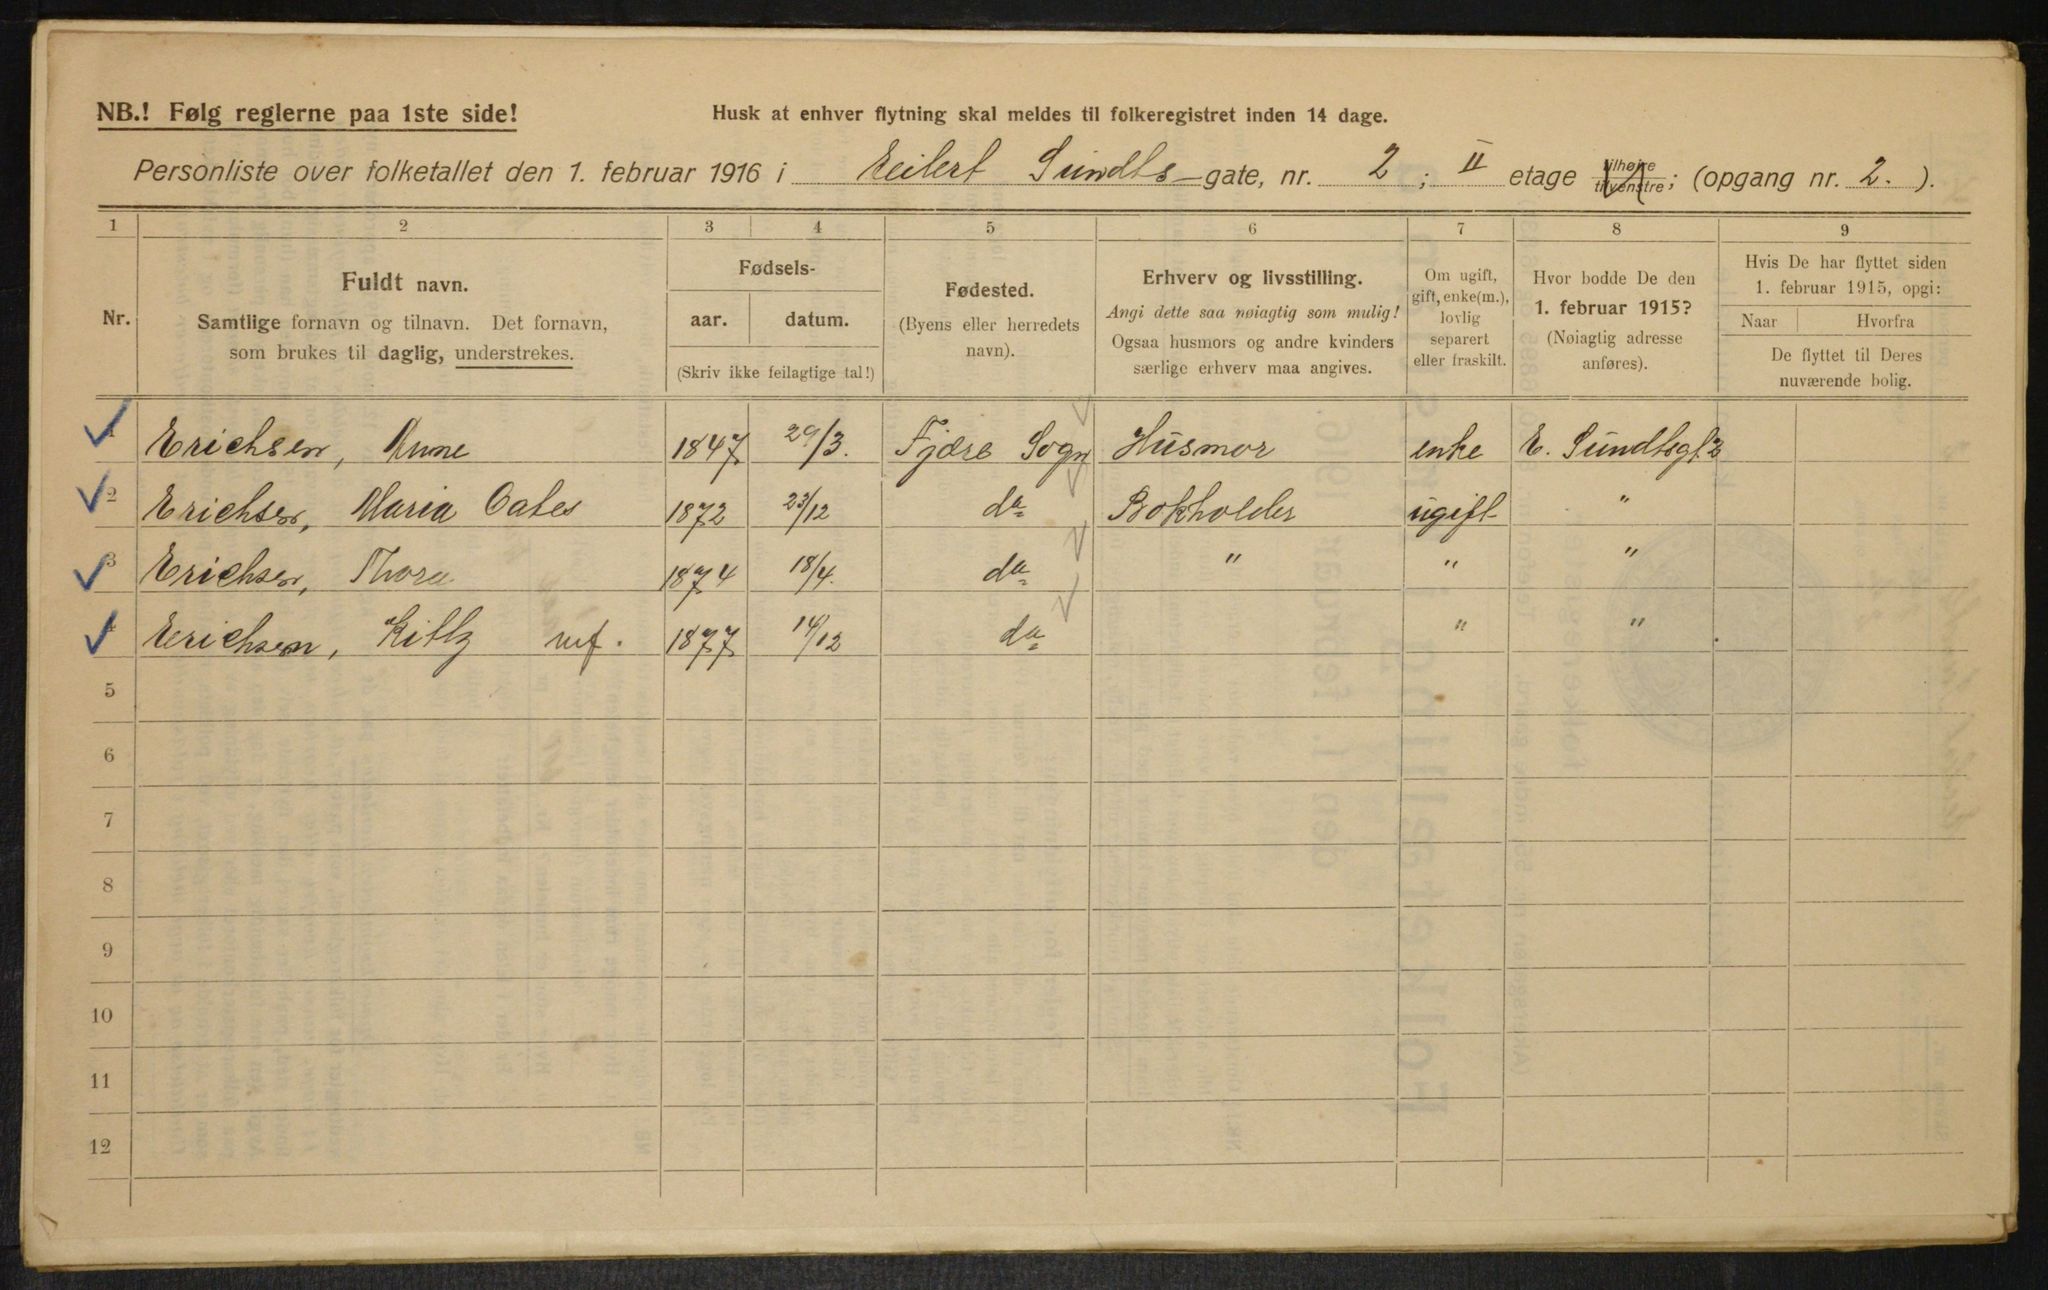 NB.! Følg reglerne paa 1ste side!
Husk at enhver flytning skal meldes til folkeregistret inden 14 dage.
Personliste over folketallet den 1. februar 1916 i Eilert Sundts gate, nr. 2 ; II etage tilhøire tilvenstre ; (opgang nr. 2. ).
1 2 3 4 5 6 7 8 9
Nr.
Fuldt navn.
Samtlige fornavn og tilnavn. Det fornavn,
som brukes til daglig, understrekes.
Fødsels-
aar. datum.
(Skriv ikke feilagtige tal!)
Fødested.
(Byens eller herredets
navn).
Erhverv og livsstilling.
Angi dette saa nøiagtig som mulig!
Ogsaa husmors og andre kvinders
særlige erhverv maa angives.
Om ugift,
gift, enke(m.),
lovlig
separert
eller fraskilt.
Hvor bodde De den
1. februar 1915?
(Nøiagtig adresse
anføres).
Hvis De har flyttet siden
1. februar 1915, opgi:
Naar Hvorfra
De flyttet til Deres
nuværende bolig.
1 Erichsen, Anne 1847 29/3. Fjære Sogn Husmor enke E. Sundtsgt 2
2 Erichsen, Maria Oates 1872 23/12 do Bokholder ugift "
3 Erichsen, Thora 1874 18/4. do " " "
4 Erichsen, Kitty 1877 14/12 do " "
5
6
7
8
9
10
11
12